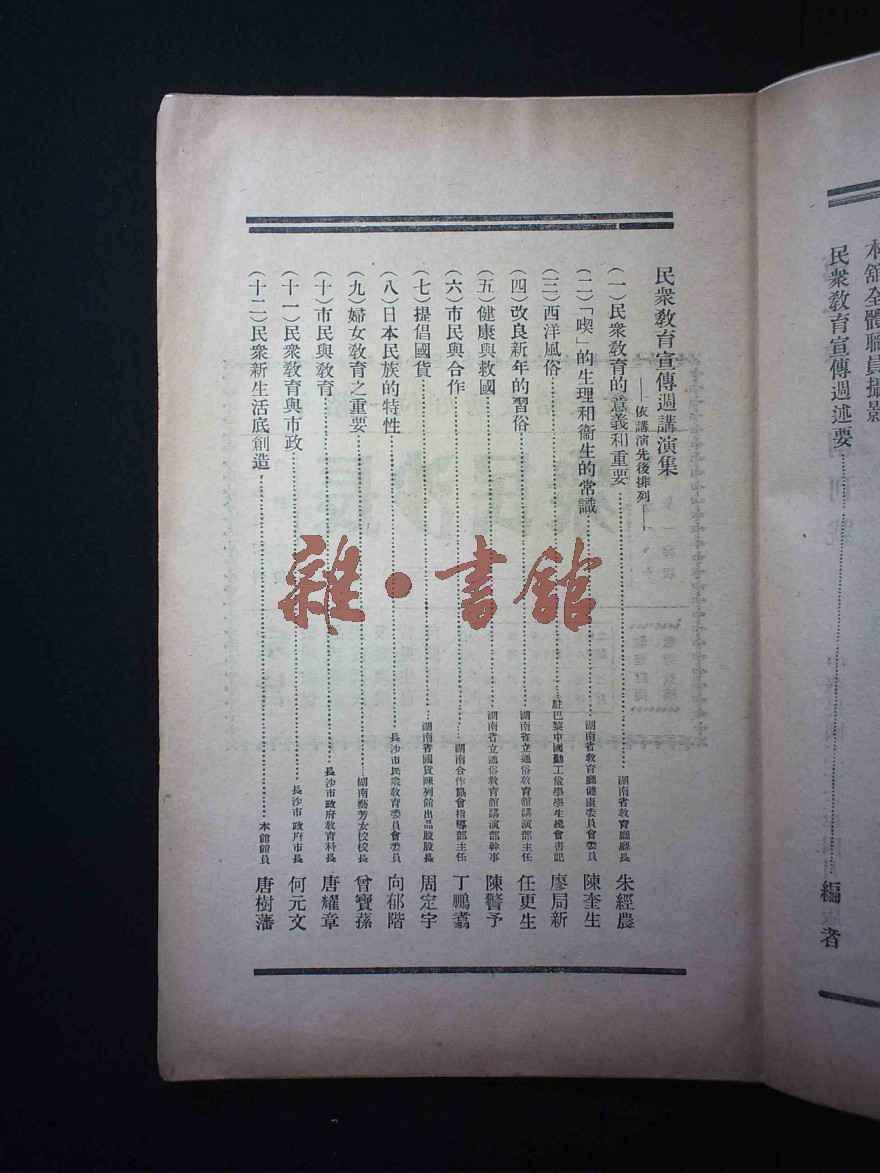 本館全體職員攝影
民衆教育宣傳週述要……編者
民衆教育宣傳週講演集
——依講演先後排列——
(一)民衆教育的意義和重要……湖南省教育廳廳長 朱經農
(二)「喫」的生理和衞生的常識……湖南省教育廳健康委員會委員 陳奎生
(三)西洋風俗……駐巴黎中國勤工儉學學生總會書記 廖局新
(四)改良新年的習俗……湖南省立通俗教育館講演部主任 任更生
(五)健康與救國……湖南省立通俗教育館講演部幹事 陳警予
(六)市民與合作……湖南合作協會指導部主任 丁鵬翥
(七)提倡國貨……湖南省國貨陳列館出品股股長 周定宇
(八)日本民族的特性……長沙市民衆教育委員會委員 向郁階
(九)婦女教育之重要……湖南藝芳女校校長 曾寶蓀
(十)市民與教育……長沙市政府教育科長 唐耀章
(十一)民衆教育與市政……長沙市政府市長 何元文
(十二)民衆新生活底創造……本館館員 唐樹藩
雜·書館